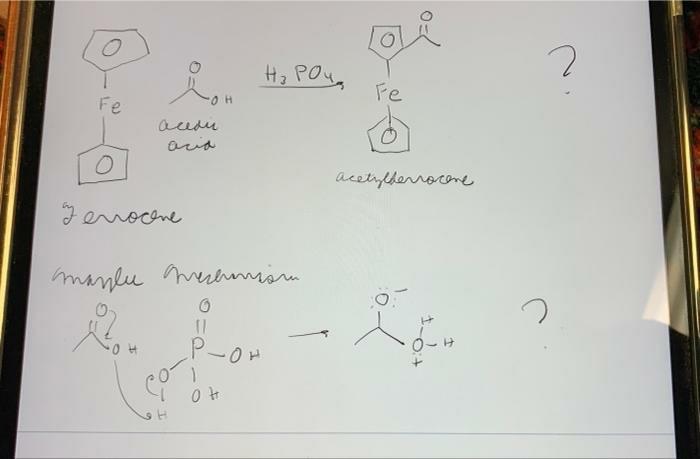 O
O OH H3PO4 O ?
Fe Fe
acetic
acid
O O
acetylferrocene
Ferrocene
maybe mechanism
O O O –
OH P – OH H ?
O O – H
H OH +